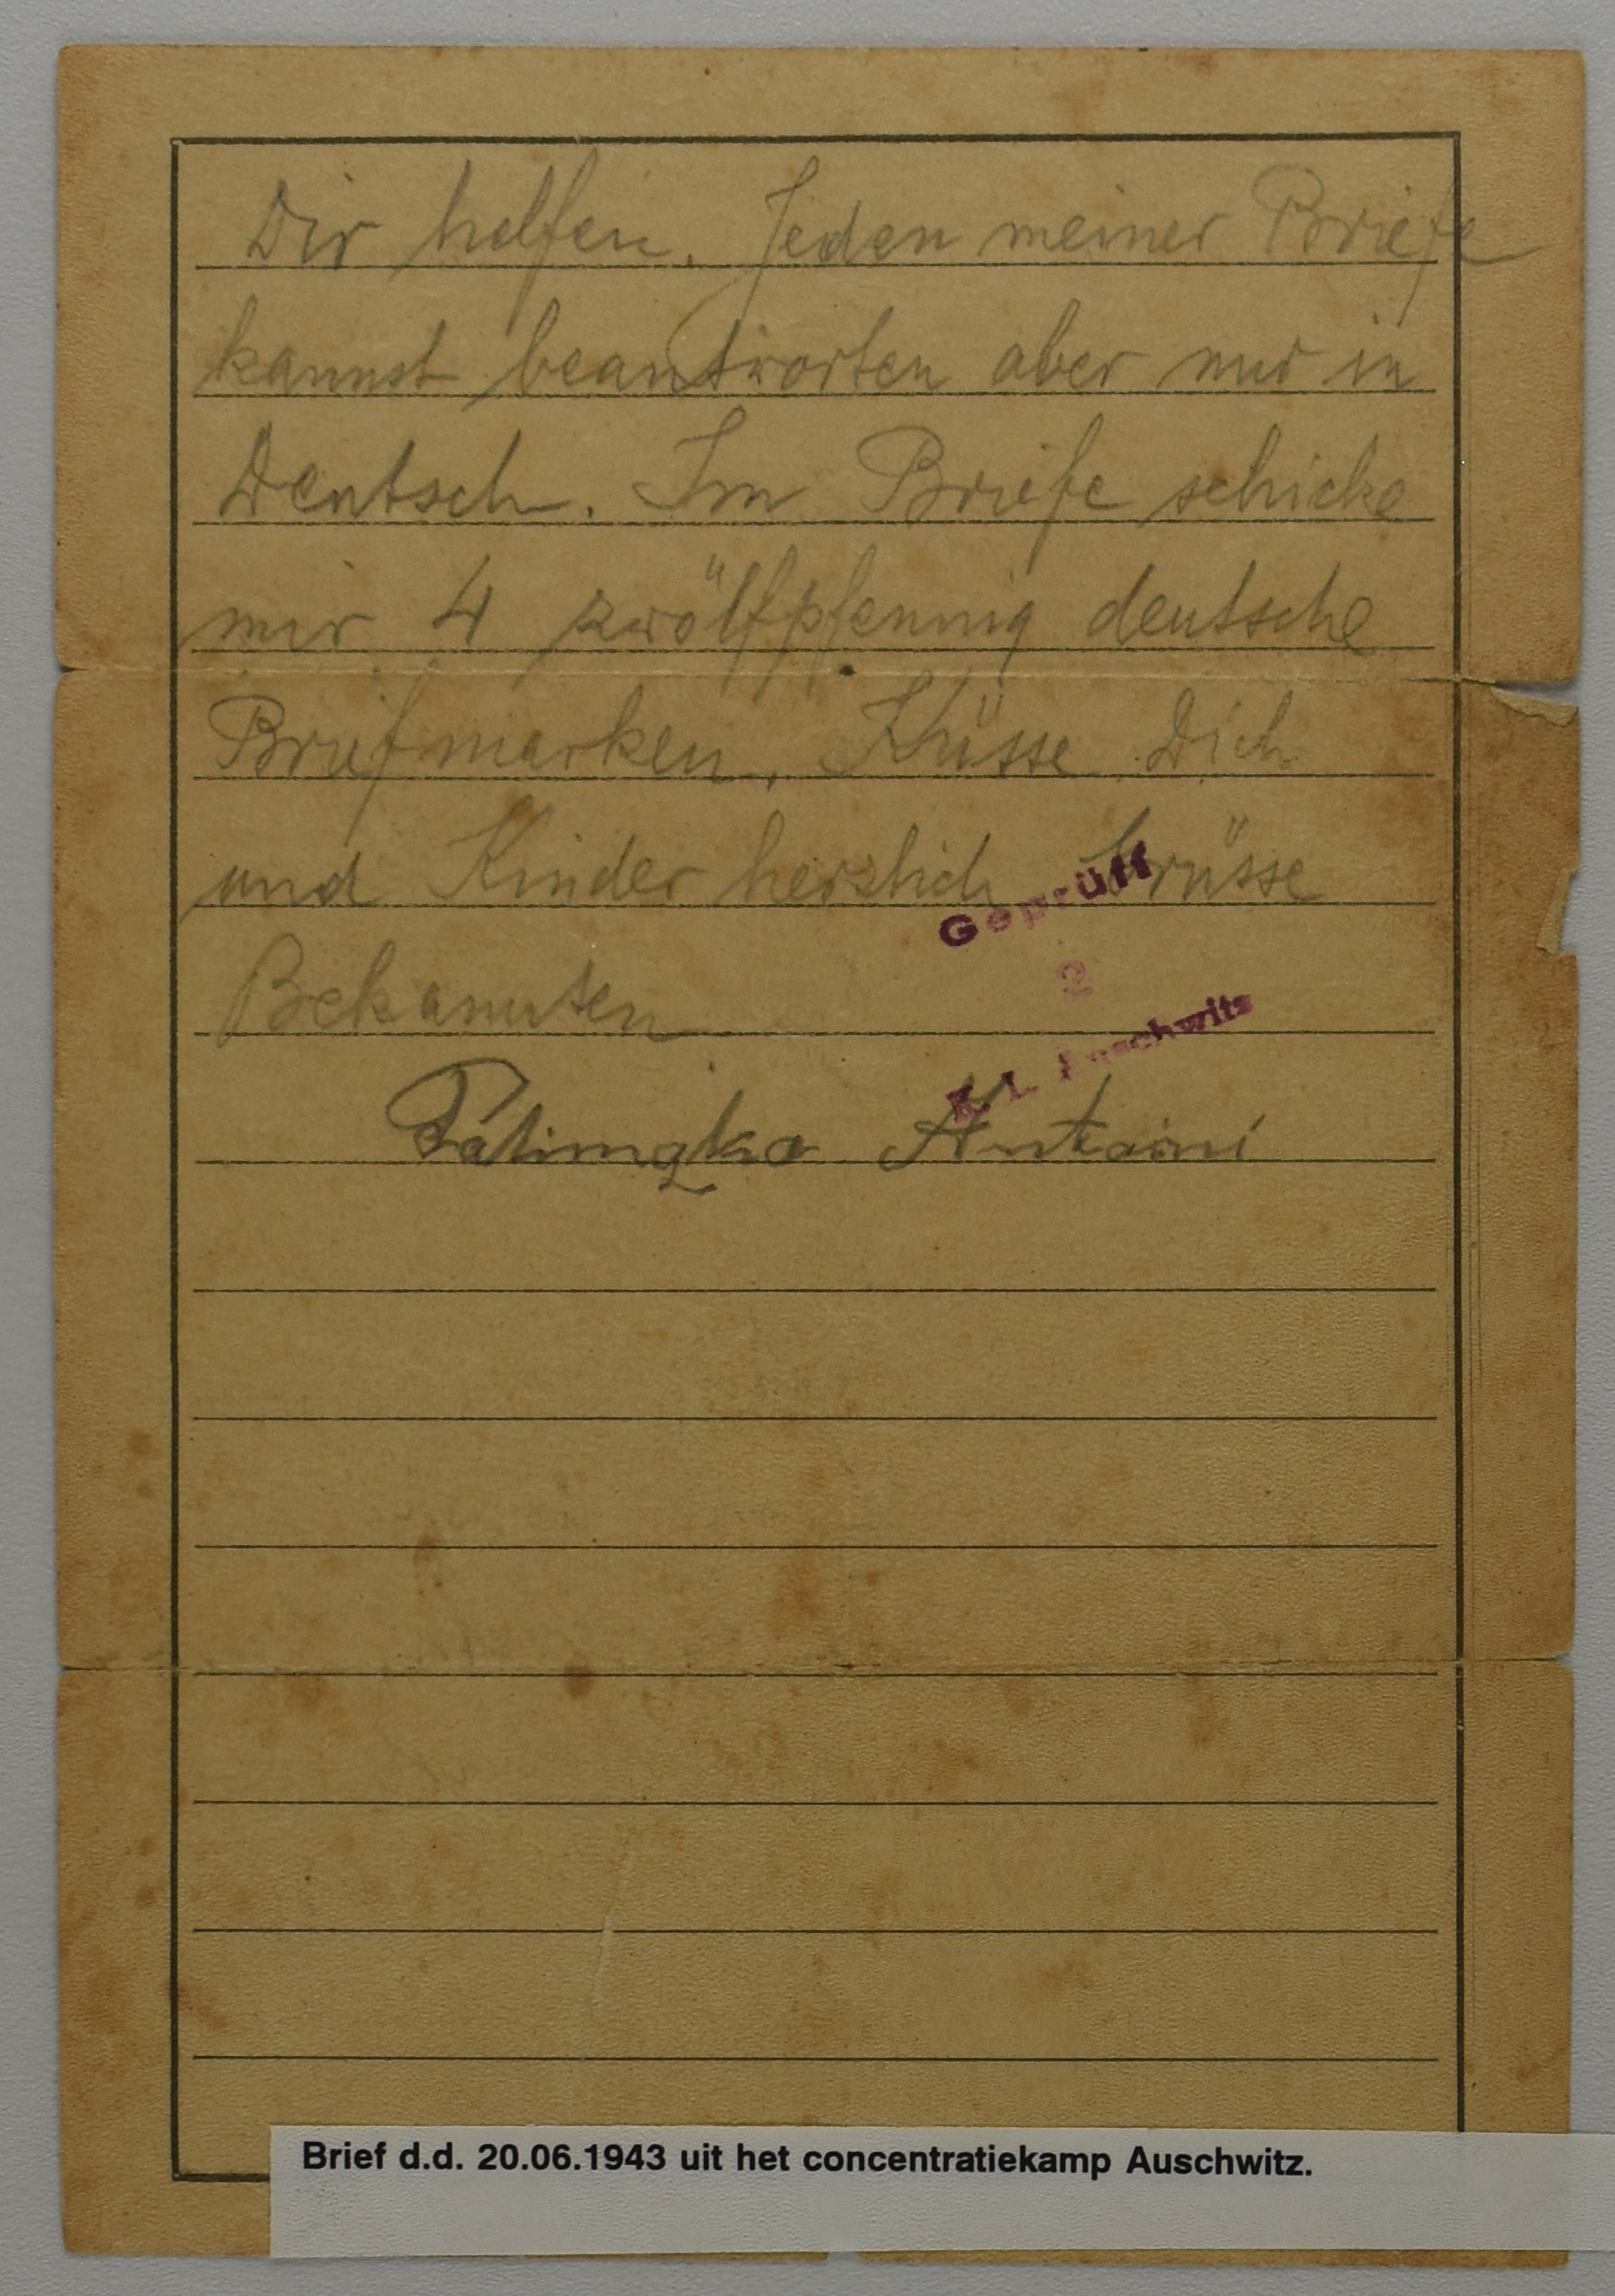 Dir helfen. Jeden meiner Briefe
kannst beantworten aber nur in
Deutsch. Im Briefe schicke
mir 4 zwölfpfennig deutsche
Briefmarken. Küsse Dich
und Kinder herzlich Grüsse
Geprüft
Bekannten
2
K. L. Auschwitz
Antoni
Brief d.d. 20.06.1943 uit het concentratiekamp Auschwitz.